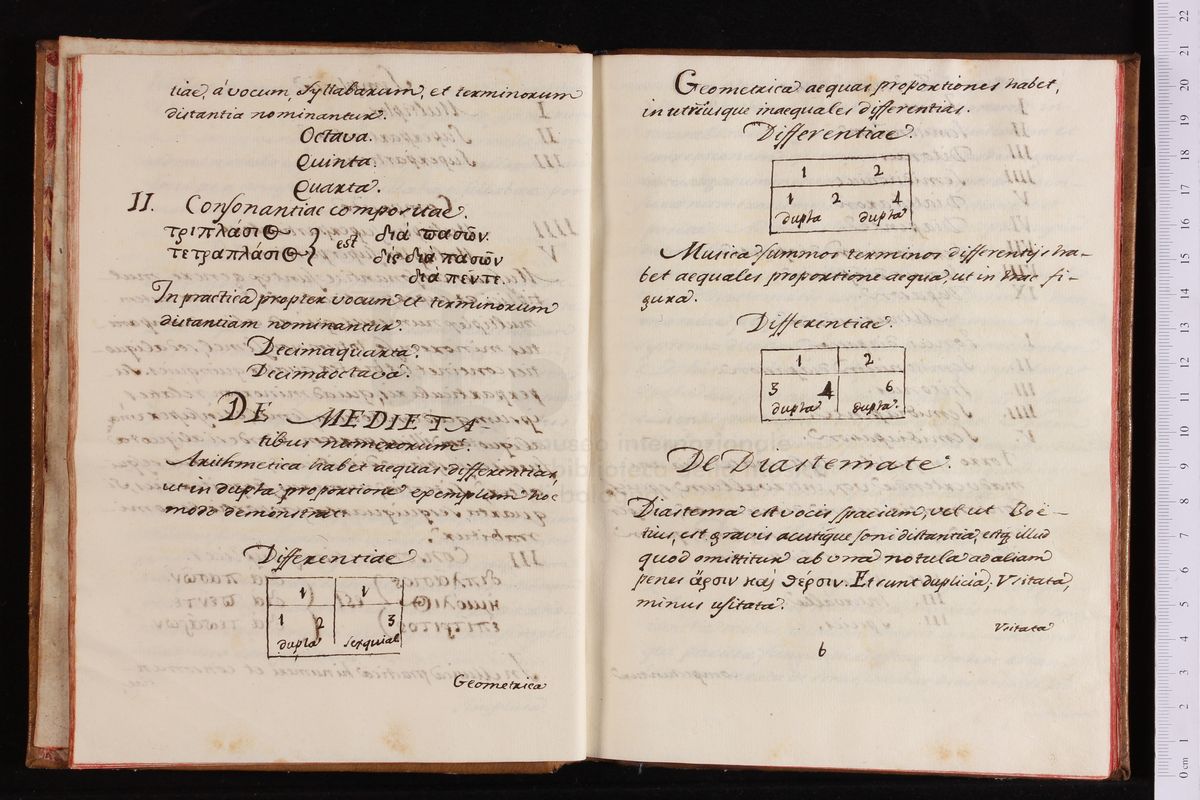 tiae, á vocum, syllabarum, et terminorum
distantia nominantur.
Octava.
Quinta.
Quarta.
II. Consonantiae compositae.
τριπλάσιος } est διὰ πασῶν.
τετραπλάσιος } δὶς διὰ πασῶν
διὰ πέντε.
In practica propter vocum et terminorum
distantiam nominantur.
Decimaquarta.
Decimaoctava.
DE MEDIETA
tibus numerorum
Arithmetica habet aequas differentias,
ut in dupla proportione exemplum hoc
modo demonstrat
Differentiae
1 1
1 2 3
dupla sesquial
Geometrica
Geometrica aequas proportiones habet,
in utrisque inaequales differentias.
Differentiae.
1 2
1 2 4
dupla dupla
Musica summos terminos differentijs ha-
bet aequales proportione aequa, ut in hac fi-
gura.
Differentiae.
1 2
3 4 6
dupla dupla.
De Diastemate.
Diastema est vocis spacium, vel ut Boë-
tius, est gravis acutique soni distantia, estq illud
quod omittitur ab una notula ad aliam
penes ἄρσιν καὶ θέρσιν. Et sunt duplicia; Usitata,
minus usitata.
Usitata
6